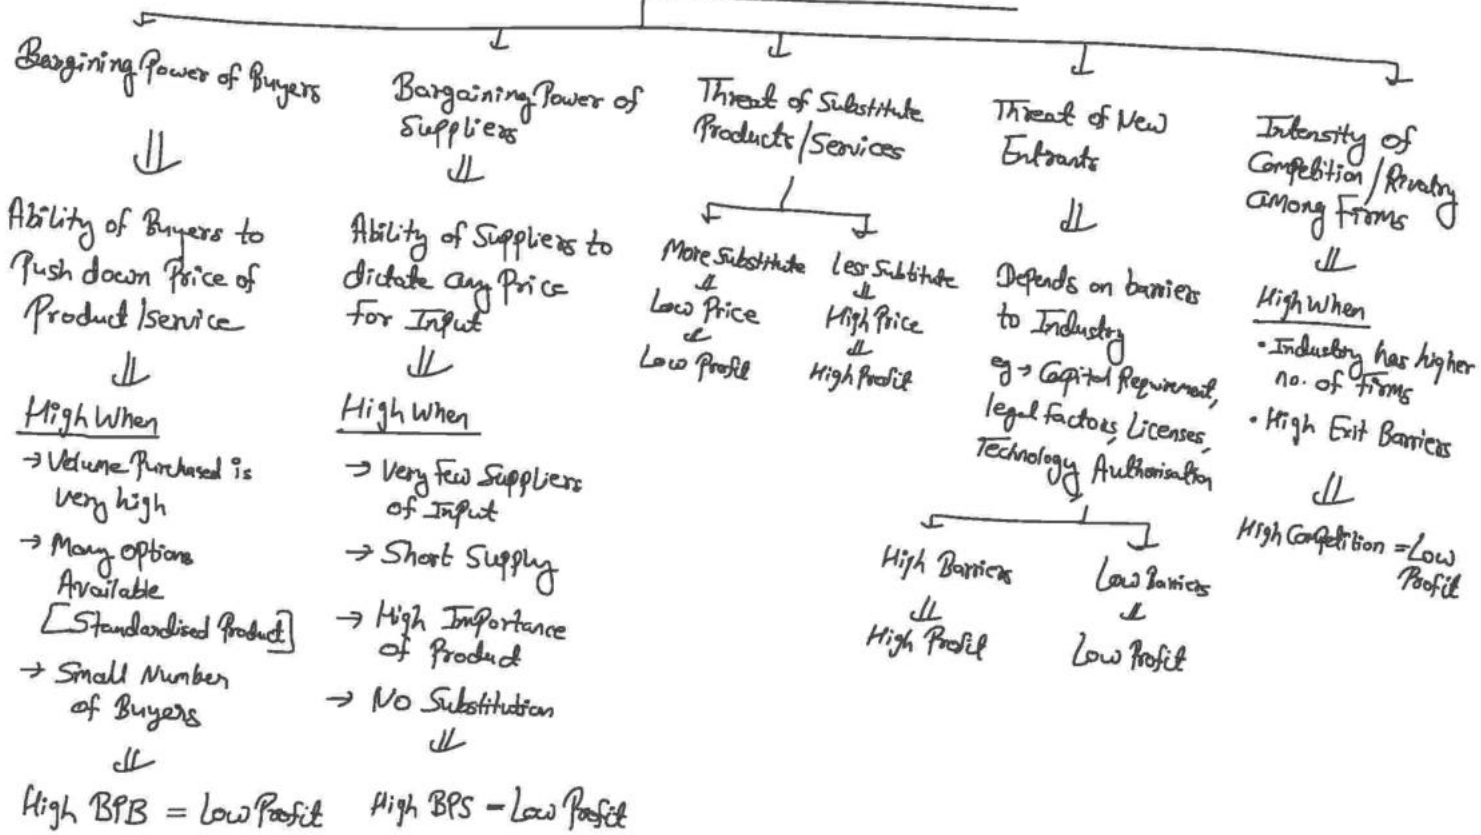 Bargining Power of Buyers
Ability of Buyers to
Push down Price of
Product/service
High When
→ Volume Purchased is
very high
→ Many options
Available
[Standardised Product]
→ Small Number
of Buyers
High BPB = Low Profit
Bargaining Power of
Suppliers
Ability of Suppliers to
dictate any Price
for Input
High When
→ Very few Suppliers
of Input
→ Short Supply
→ High Importance
of Product
→ No Substitution
High BPS - Low Profit
Threat of Substitute
Products/Services
More Substitute
Low Price
Low Profit
Less Subtitute
High Price
High Profit
Threat of New
Entrants
Depends on barriers
to Industry
eg → Capital Requirement,
legal factors, Licenses,
Technology Authorisation
High Barriers
High Profit
Low Barriers
Low Profit
Intensity of
Competition/Rivalry
among Firms
High When
• Industry has higher
no. of firms
• High Exit Barriers
High Competition = Low
Profit